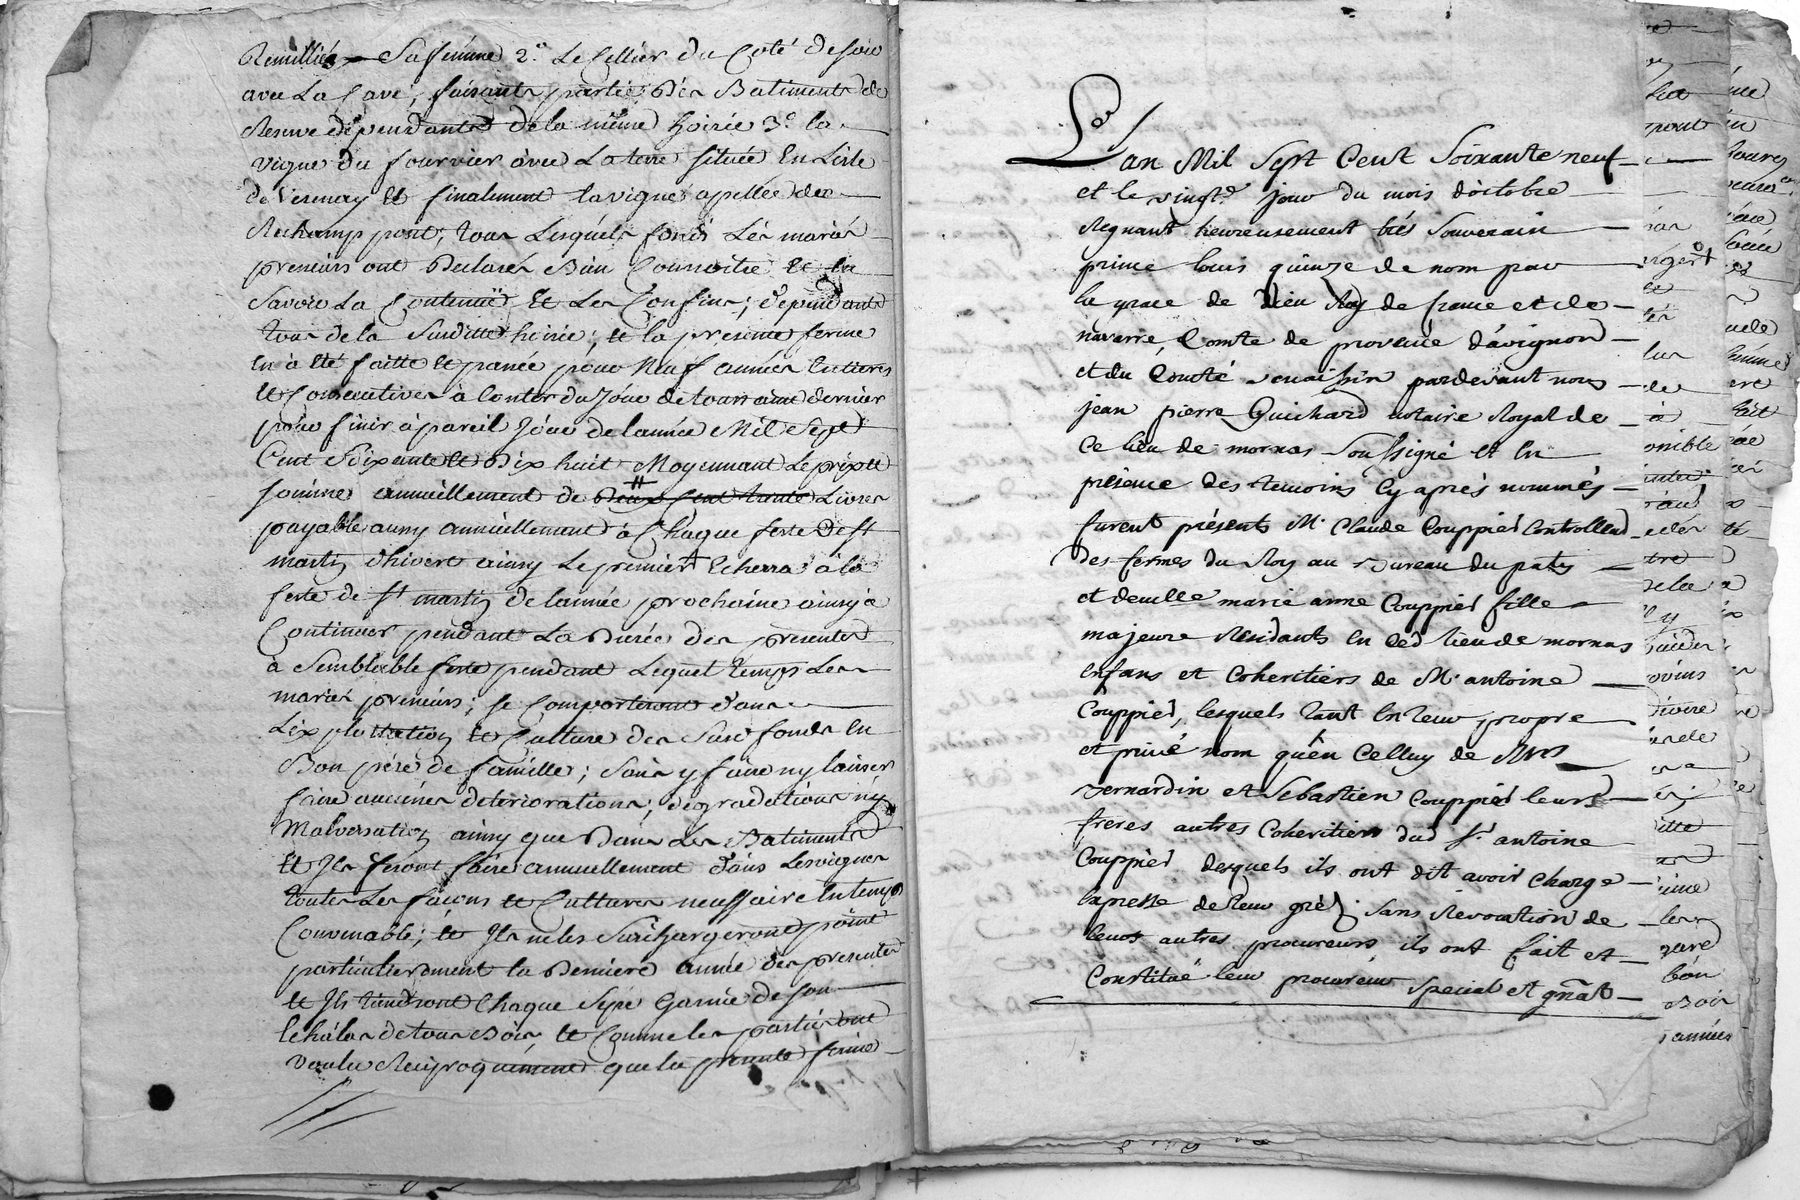 Remilliés sa femme 2.º Le Cellier du Coté de soir
avec La Cave, faisants parties Des Batiments de
Reserve dependants de la même hoirie 3.º la
vigne du fournier avec La terre située En Lisle
de Verenay Et finalement la vigne apellée de
Rechamp pont, tous Lesquels fonds Les mariés
preneurs ont Declarés Bien Connoitre Et en
Savoir La Contenüe Et Les Confins; dependants
tous de la Susditte hoirie; et la presente ferme
En a Eté faitte Et passée pour Neuf années Entieres
Et Consecutives à Conter du Jour de toussaint dernier
pour finir à pareil Jour de lannée Mil Sept
Cent Soixante Et Dix huit Moyennant Le prix Et
somme annuellement de Deux Cent trente Livres
payable aussy annuellement à Chaque feste De st
martin dhivert ainsy Le premier Echerra à la
feste de st martin de lannée prochaine ainsy à
Continuer pendant La Durée des presentes
à Semblable feste pendant Lequel temps Les
mariés preneurs; se Comporteront dans
Lexploittation Et Culture des Susd fonds En
Bon père de famille; Sans y faire ny laisser
faire aucunes deteriorations, degradations ny
Malversation ainsy que Dans Les Batiments
Et Ils feront faire annuellement dans Les vignes
toutes Les façons Et Cultures necessaire En temps
Convenable; Et Ils ne les Surchargeront point
particulierement la Derniere année des presentes
Et Ils tiendront Chaque Sepe Garnie de son
Echalas de tous Bois, Et Comme les parties ont
voulu Reciproquement que la presente ferme
Lan Mil Sept Cent Soixante neuf
et le vingt.e jour du mois d'octobre
Regnant heureusement trés Souverain
prince louis quinze de nom par
la grace de Dieu Roy de france et de
navarre, Comte de provence d'avignon
et du Comté venaissin pardevant nous
jean pierre Guichard notaire Royal de
Ce lieu de mornas Soussigné et en
présence des temoins cy aprés nommés
furent présents M.r Claude Couppier Controlleur
Des fermes du Roy au Bureau du patis
et demelle marie anne Couppier fille
majeure Residants en ced lieu de mornas
enfans et Coheritiers de M.r antoine
Couppier, lesquels tant en leur propre
et privé nom qu'en Celluy de Mrs
Bernardin et Sebastien Couppier leurs
freres autres Coheritiers dud S.r antoine
Couppier desquels ils ont dit avoir charge
expresse de leur gré, Sans Revocation de
leurs autres procureurs ils ont fait et
Constitué leur procureur Special et gñal